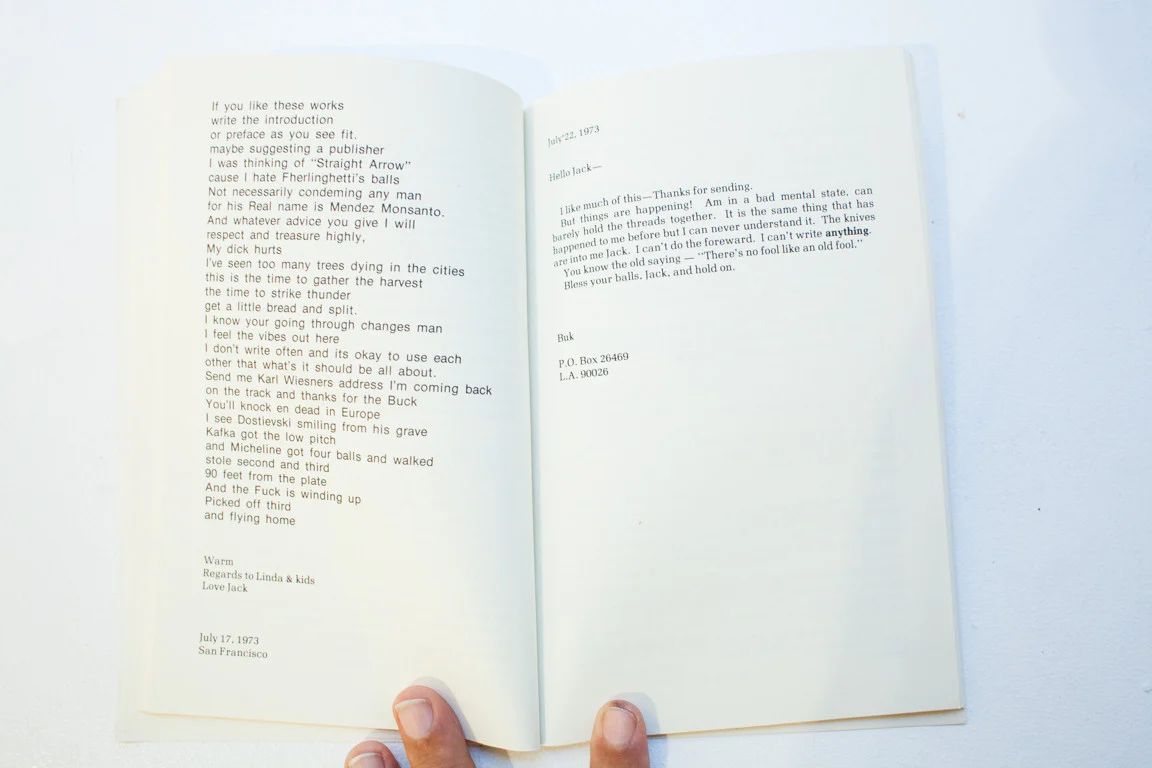 If you like these works
write the introduction
or preface as you see fit.
maybe suggesting a publisher
I was thinking of "Straight Arrow"
cause I hate Fherlinghetti's balls
Not necessarily condeming any man
for his Real name is Mendez Monsanto.
And whatever advice you give I will
respect and treasure highly,
My dick hurts
I've seen too many trees dying in the cities
this is the time to gather the harvest
the time to strike thunder
get a little bread and split.
I know your going through changes man
I feel the vibes out here
I don't write often and its okay to use each
other that what's it should be all about.
Send me Karl Wiesners address I'm coming back
on the track and thanks for the Buck
You'll knock en dead in Europe
I see Dostievski smiling from his grave
Kafka got the low pitch
and Micheline got four balls and walked
stole second and third
90 feet from the plate
And the Fuck is winding up
Picked off third
and flying home
Warm
Regards to Linda & kids
Love Jack
July 17, 1973
San Francisco
July 22, 1973
Hello Jack—
I like much of this—Thanks for sending.
But things are happening! Am in a bad mental state, can
barely hold the threads together. It is the same thing that has
happened to me before but I can never understand it. The knives
are into me Jack. I can't do the foreward. I can't write anything.
You know the old saying — "There's no fool like an old fool."
Bless your balls, Jack, and hold on.
Buk
P.O. Box 26469
L.A. 90026